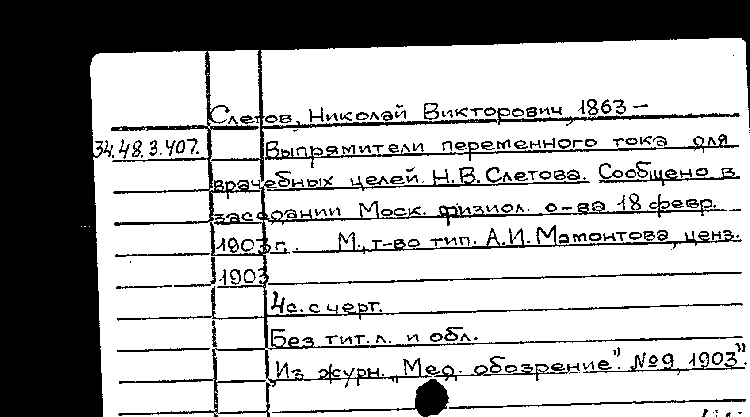 Слетов, Николай Викторович, 1863 –
34.48.3.407. Выпрямители переменного тока для
врачебных целей. Н.В. Слетова. Сообщено в
заседании Моск. физиол. о-ва 18 февр.
1903 г. М., т-во тип. А.И. Мамонтова, ценз.
1903
4 с. с черт.
Без тит. л. и обл.
„Из журн. „Мед. обозрение" №9, 1903".